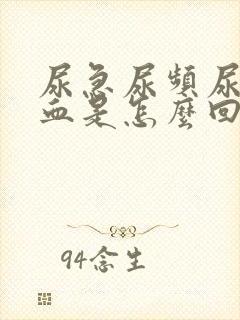 尿急尿頻尿
血是怎麼回
94念生